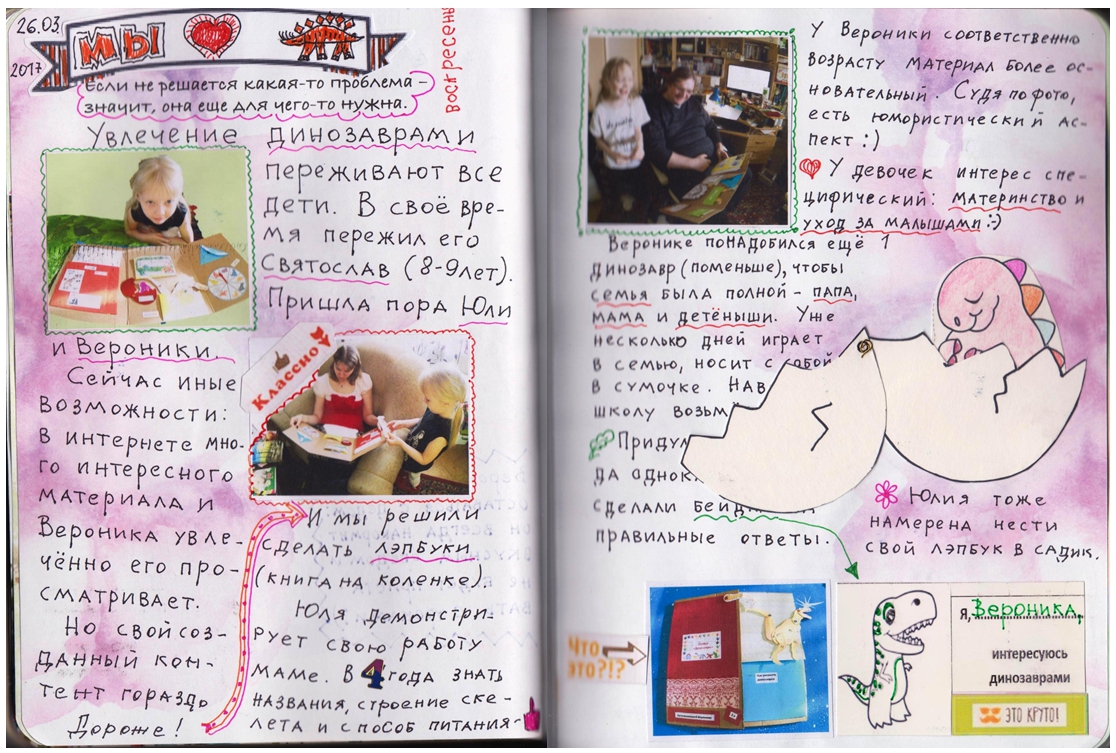 26.03
2017
МЫ
Воскресень
Если не решается какая-то проблема -
значит, она еще для чего-то нужна.
Увлечение динозаврами
переживают все
дети. В своё вре-
мя пережил его
Святослав (8-9 лет).
Пришла пора Юли
и Вероники.
Сейчас иные
возможности:
в интернете мно-
го интересного
материала и
Вероника увле-
чённо его про-
сматривает.
Но свой соз-
данный кон-
тент гораздо
Дороже!
Классно
И мы решили
сделать лэпбуки
(книга на коленке).
Юля демонстри-
рует свою работу
маме. В 4 года знать
названия, строение ске-
лета и способ питания-
У Вероники соответственно
возрасту материал более ос-
новательный. Судя по фото,
есть юмористический ас-
пект :)
У девочек интерес спе-
цифический: материнство и
уход за малышами :-)
Веронике понадобился ещё 1
динозавр (поменьше), чтобы
семья была полной - папа,
мама и детёныши. Уже
несколько дней играет
в семью, носит с собой
в сумочке. Нав
школу возьм
Придум
да однок
сделали бейд
правильные ответы.
Юлия тоже
намерена нести
свой лэпбук в садик.
Что
это?!?
Я, Вероника,
интересуюсь
динозаврами
ЭТО КРУТО!